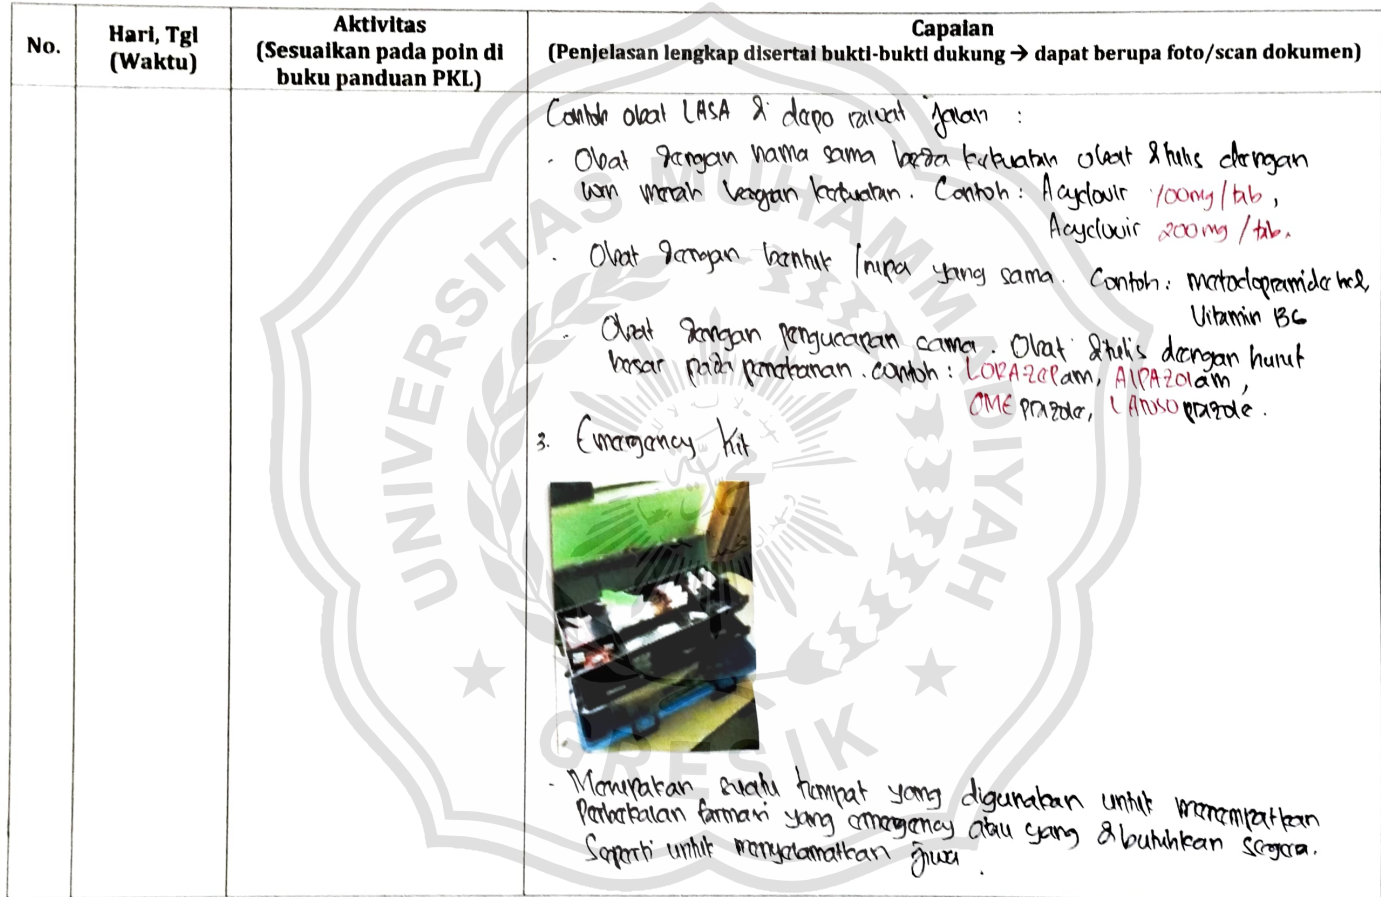 No.
Hari, Tgl
(Waktu)
Aktivitas
(Sesuaikan pada poin di
buku panduan PKL)
Capaian
(Penjelasan lengkap disertai bukti-bukti dukung → dapat berupa foto/scan dokumen)
Contoh obat LASA di depo rawat jalan :
- Obat dengan nama sama beda kekuatan obat ditulis dengan
wrn merah bagian kekuatan. Contoh : Acyclovir 400mg/tab,
Acyclovir 200 mg / tab.
- Obat dengan bentuk / rupa yang sama. Contoh : metoclopramide hcl,
Vitamin B6
- Obat dengan pengucapan sama. Obat ditulis dengan huruf
besar pada penekanan. contoh : LORAZEPam, AlPAZOlam,
OMEprazole, LANSOprazole.
3. Emergency Kit
- Merupakan suatu tempat yang digunakan untuk menempatkan
Perbekalan farmasi yang emergency atau yang dibutuhkan segera.
Seperti untuk menyelamatkan jiwa.
UNIVERSITAS MUHAMMADIYAH
GRESIK